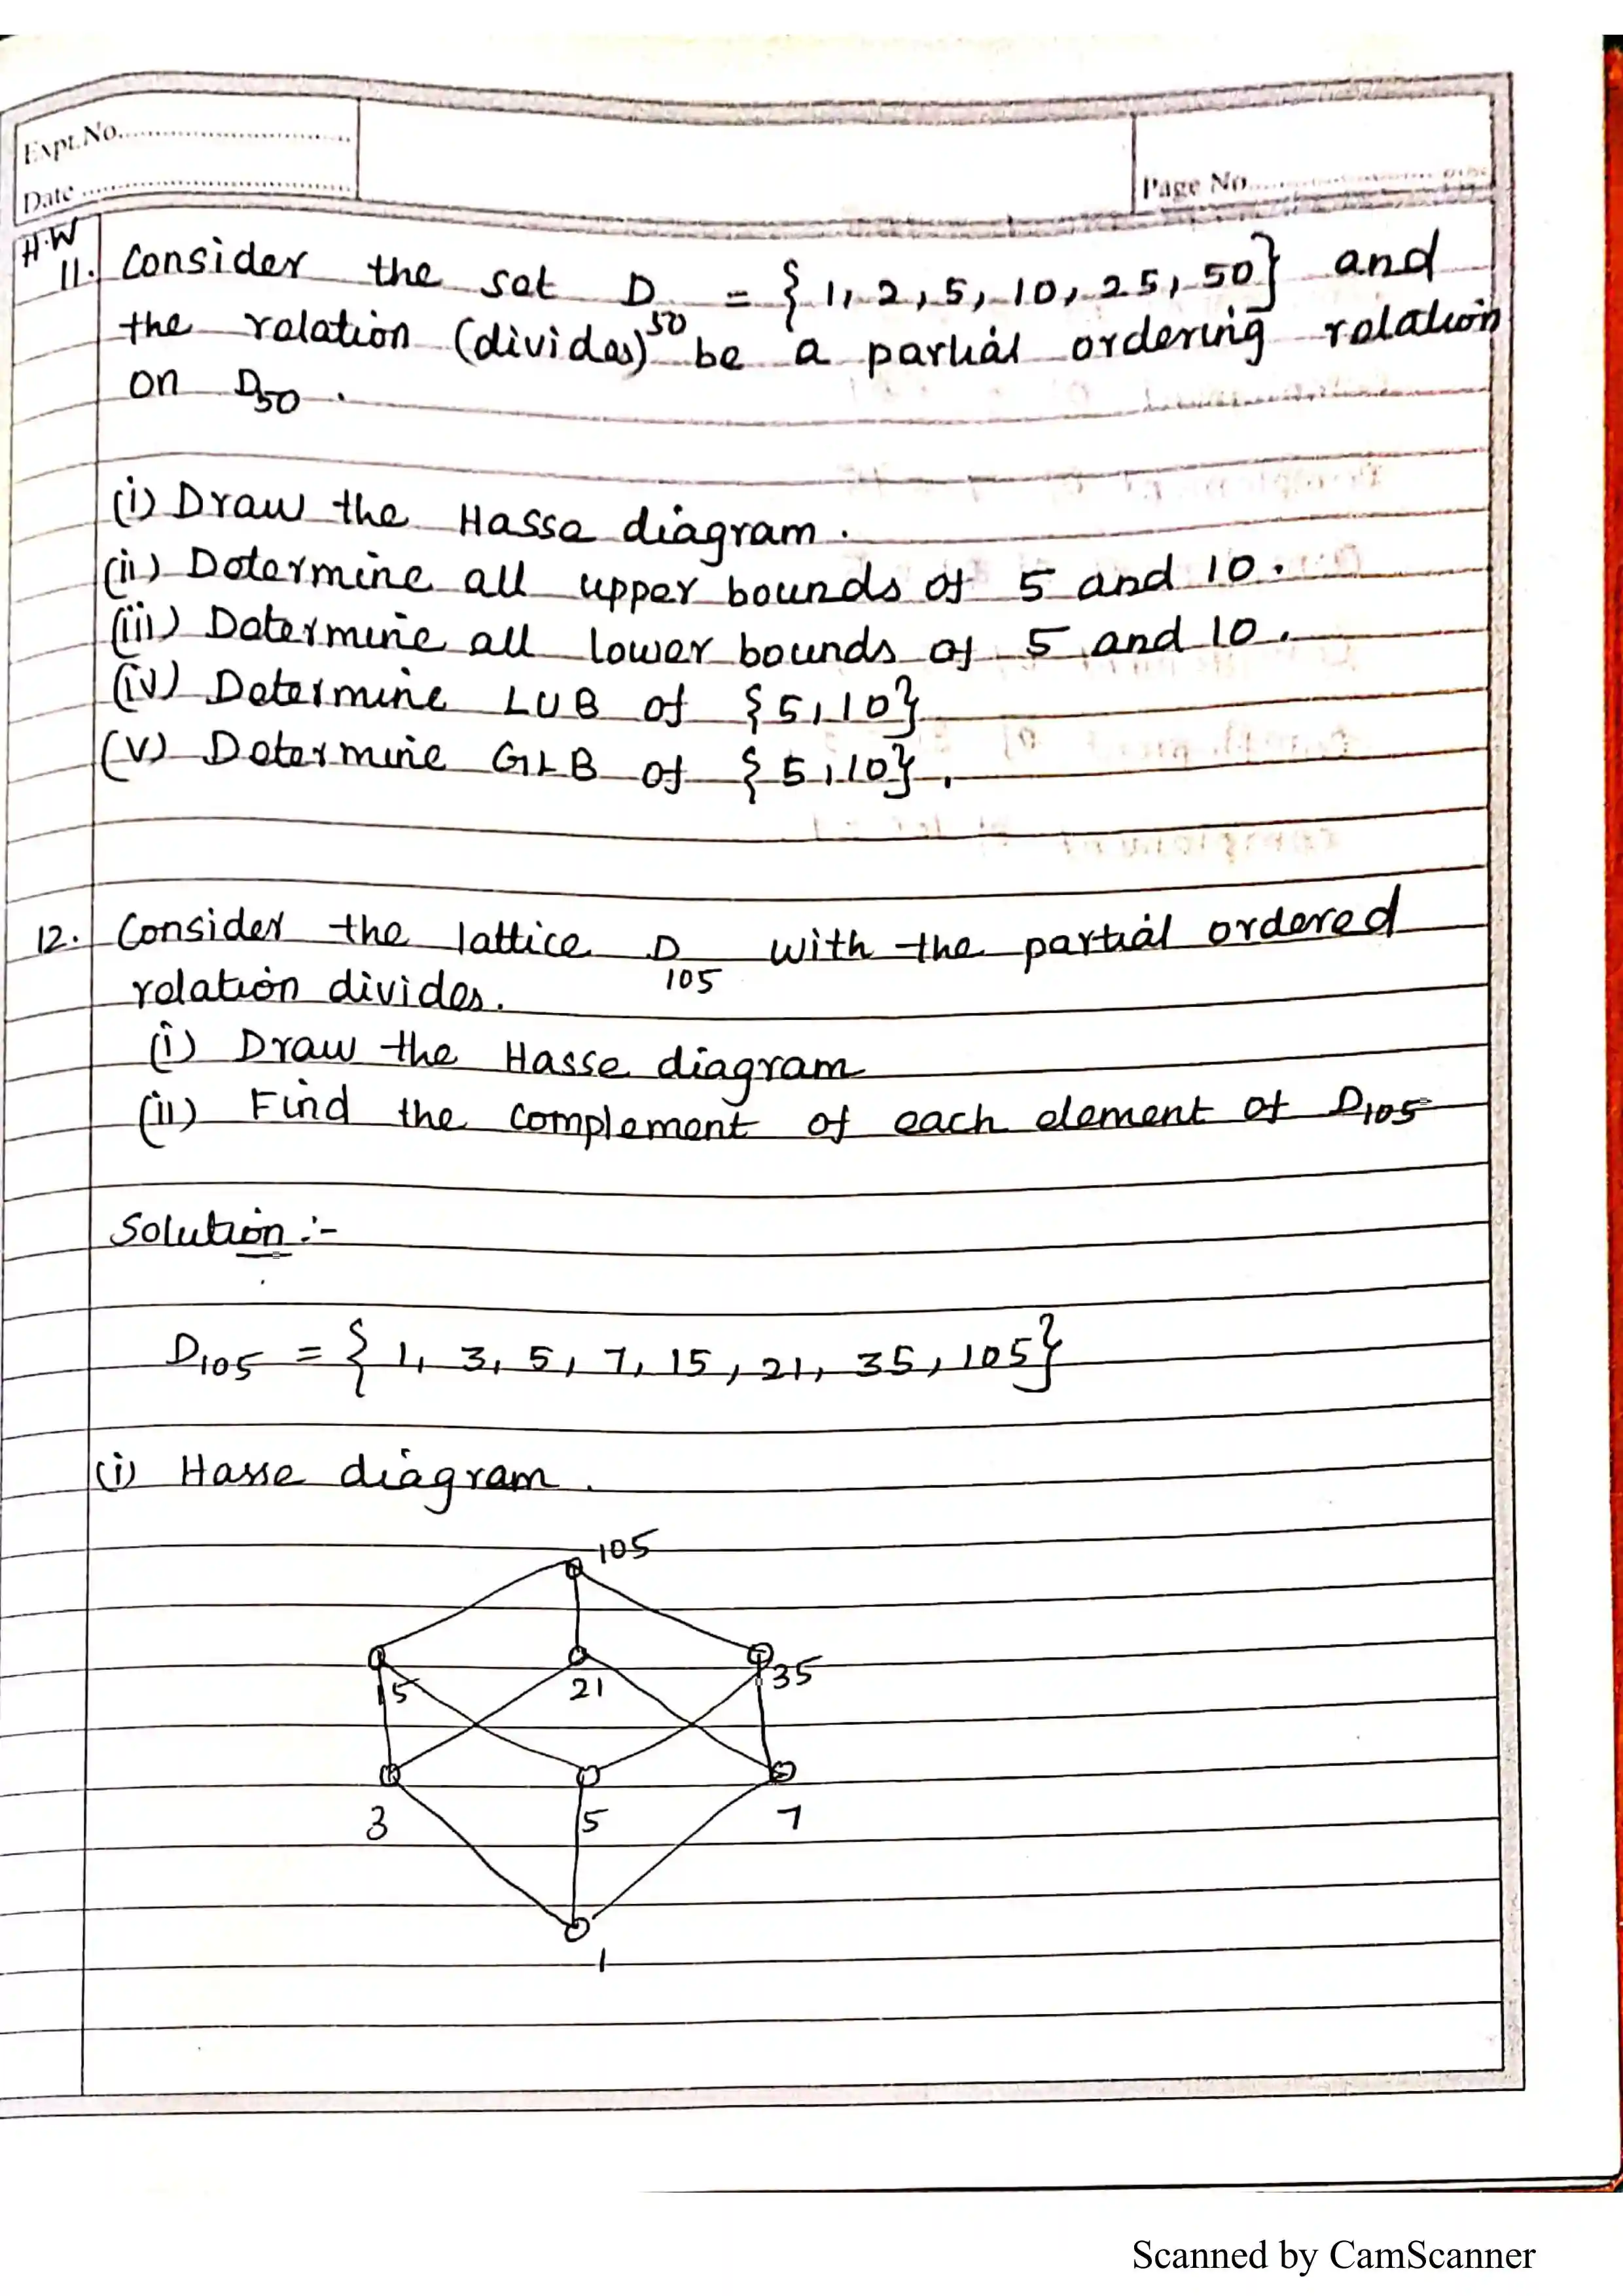 Expt.No.
Date
Page No.
H.W
11. Consider the set D50 = { 1, 2, 5, 10, 25, 50} and
the relation (divides) be a partial ordering relation
on D50 .
(i) Draw the Hasse diagram .
(ii) Determine all upper bounds of 5 and 10 .
(iii) Determine all lower bounds of 5 and 10 .
(iv) Determine LUB of {5, 10}
(v) Determine GLB of {5, 10} .
12. Consider the lattice D105 with the partial ordered
relation divides.
(i) Draw the Hasse diagram
(ii) Find the complement of each element of D105
Solution :-
D105 = { 1, 3, 5, 7, 15, 21, 35, 105}
(i) Hasse diagram .
105
15 21 35
3 5 7
1
Scanned by CamScanner